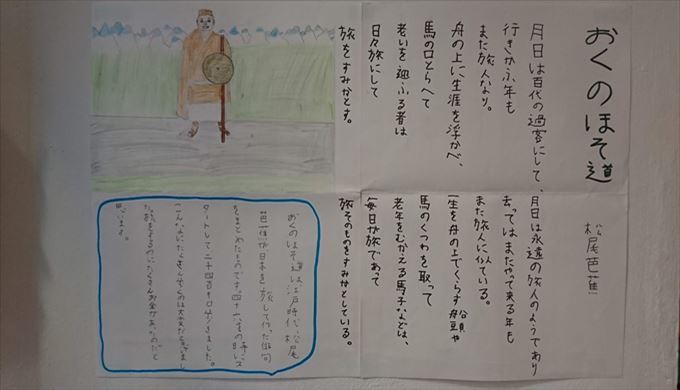 おくのほそ道
松尾芭蕉
月日は百代の過客にして、
行きかふ年も
また旅人なり。
舟の上に生涯を浮かべ、
馬の口とらへて
老いを迎ふる者は
日々旅にして
旅をすみかとす。
月日は永遠の旅人のようであり
去ってはまたやって来る年も
また旅人に似ている。
一生を舟の上でくらす船頭や
馬のくつわを取って
老年をむかえる馬子などは、
毎日が旅であって
旅そのものをすみかとしている。
おくのほそ道は江戸時代に松尾
芭蕉が日本を旅して作った俳句
をまとめたものです。四十六才の
タートして二千四百キロ歩きました。
こんなにたくさん歩くのは大変だ
たくさんお金が
思います。